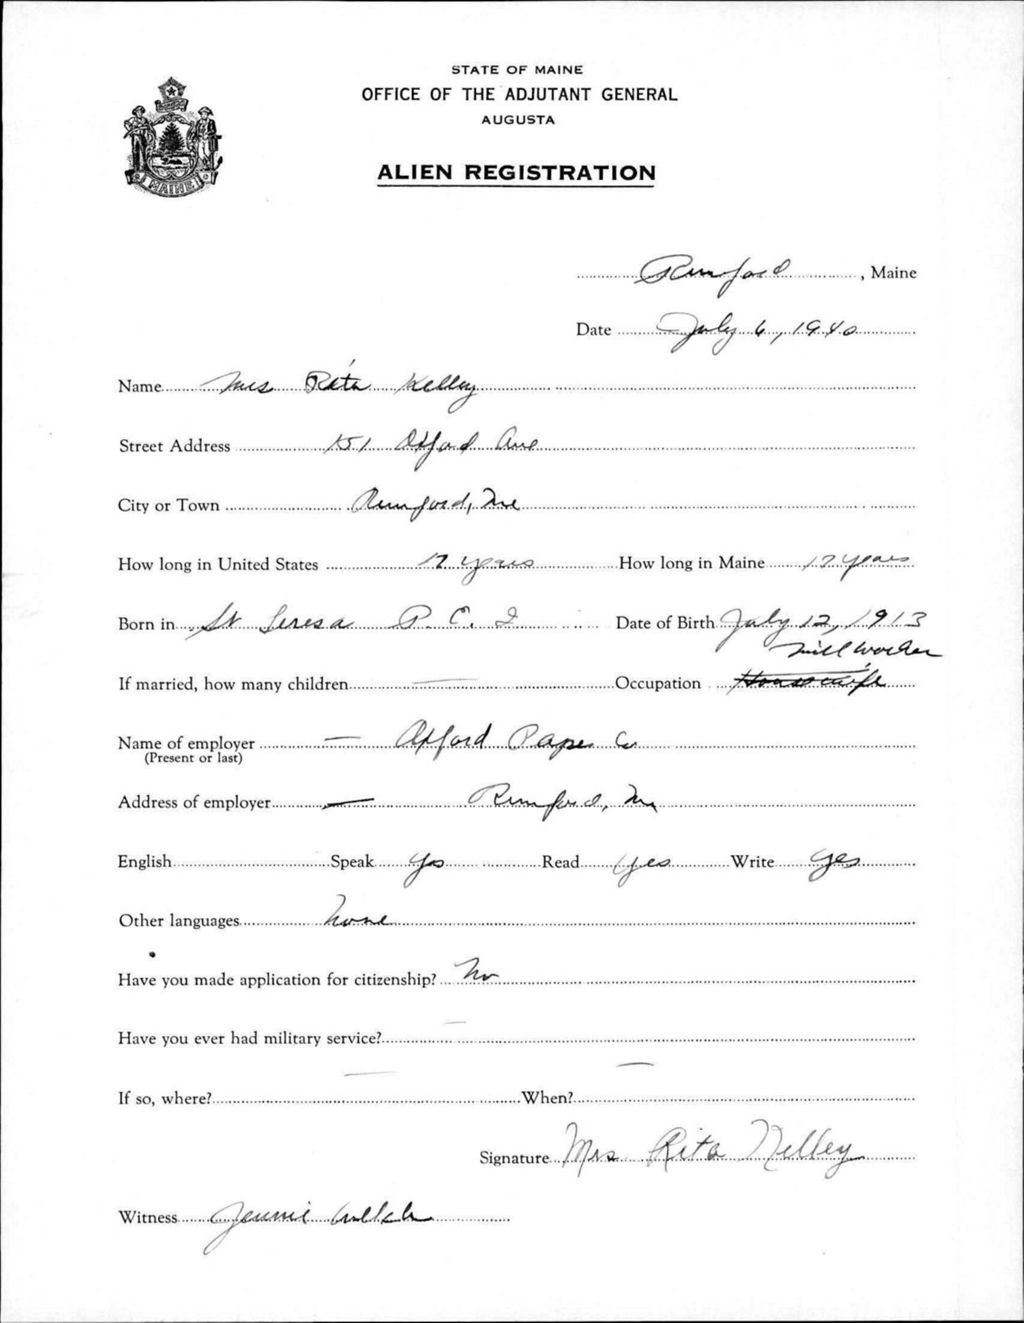 STATE OF MAINE
OFFICE OF THE ADJUTANT GENERAL
AUGUSTA
ALIEN REGISTRATION
MAINE
Rumford, Maine
Date July 6, 1940
Name Mrs Rita Kelley
Street Address 151 Oxford Ave
City or Town Rumford, Me
How long in United States 17 years How long in Maine 17 years
Born in St Teresa P. E. I Date of Birth July 12, 1913
Mill worker
If married, how many children — Occupation Housewife
Name of employer — Oxford Paper Co
(Present or last)
Address of employer — Rumford, Me
English Speak Yes Read Yes Write Yes
Other languages None
Have you made application for citizenship? No
Have you ever had military service? —
If so, where? — When? —
Signature Mrs Rita Kelley
Witness Jennie Welch